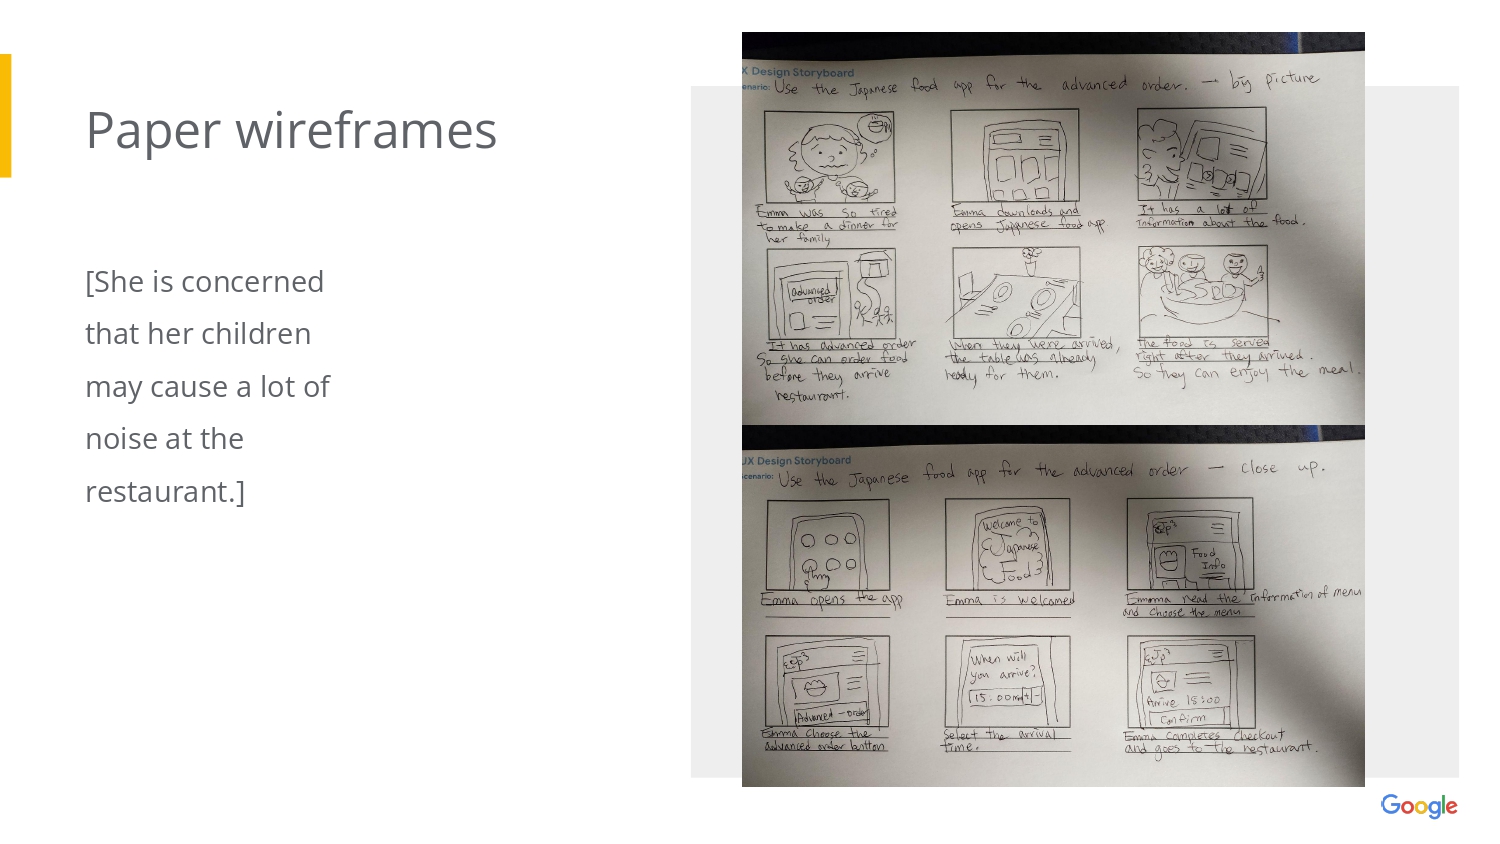 Paper wireframes
[She is concerned
that her children
may cause a lot of
noise at the
restaurant.]
X Design Storyboard
enario: Use the Japanese food app for the advanced order. — big picture
Emma was so tired
to make a dinner for
her family
Emma downloads and
opens Japanese food app
It has a lot of
information about the food.
advanced
order
It has advanced order
So she can order food
before they arrive
restaurant.
When they were arrived,
the table was already
ready for them.
The food is served
right after they arrived.
So they can enjoy the meal.
UX Design Storyboard
Scenario: Use the Japanese food app for the advanced order — close up.
Emma opens the app
Welcome to
Japanese
Food
Emma is welcomed
Food
Info
Emma read the information of menu
and choose the menu
Advanced-order
Emma choose the
advanced order button
When will
you arrive?
15:00
Select the arrival
time.
Arrive 15:00
Confirm
Emma completes checkout
and goes to the restaurant.
Google